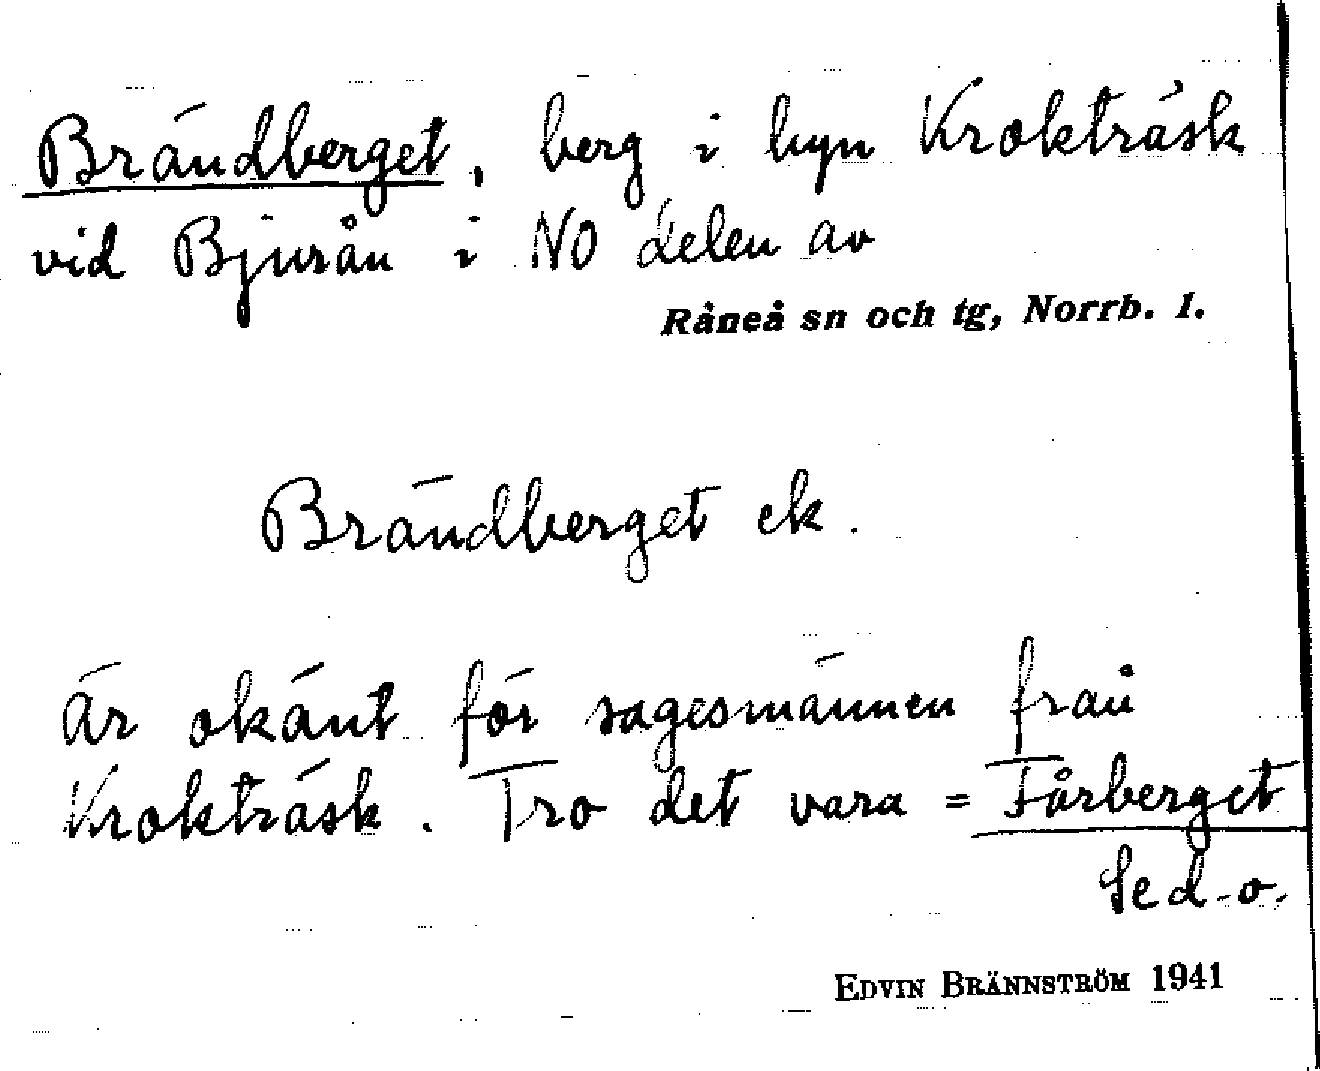 Brändberget, berg i byn Krokträsk
vid Bjurån i NO delen av
Råneå sn och tg, Norrb. l.
Brändberget ek.
Är okänt för sagesmännen från
Krokträsk. Tro det vara = Fårberget
Se d. o.
EDVIN BRÄNNSTRÖM 1941